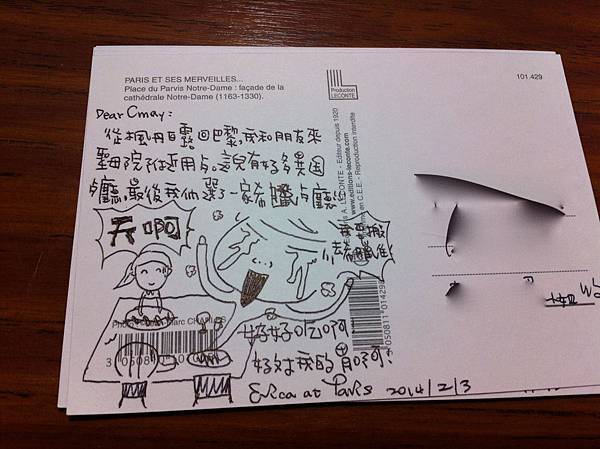 PARIS ET SES MERVEILLES...
Place du Parvis Notre-Dame : façade de la
cathédrale Notre-Dame (1163-1330).
101.429
Production
LECONTE
Dear Cmay:
從楓丹白露回巴黎,我和朋友來
聖母院附近用卢。這兒有好多異国
卢廳,最後我们選了一家希臘卢廳
天啊
好好吃啊
好对我的胃啊!
Erica at Paris 2014/2/3
LECONTE - Editeur depuis 1920
www.editions-leconte.com
en C.E.E. - Reproduction interdite
Marc